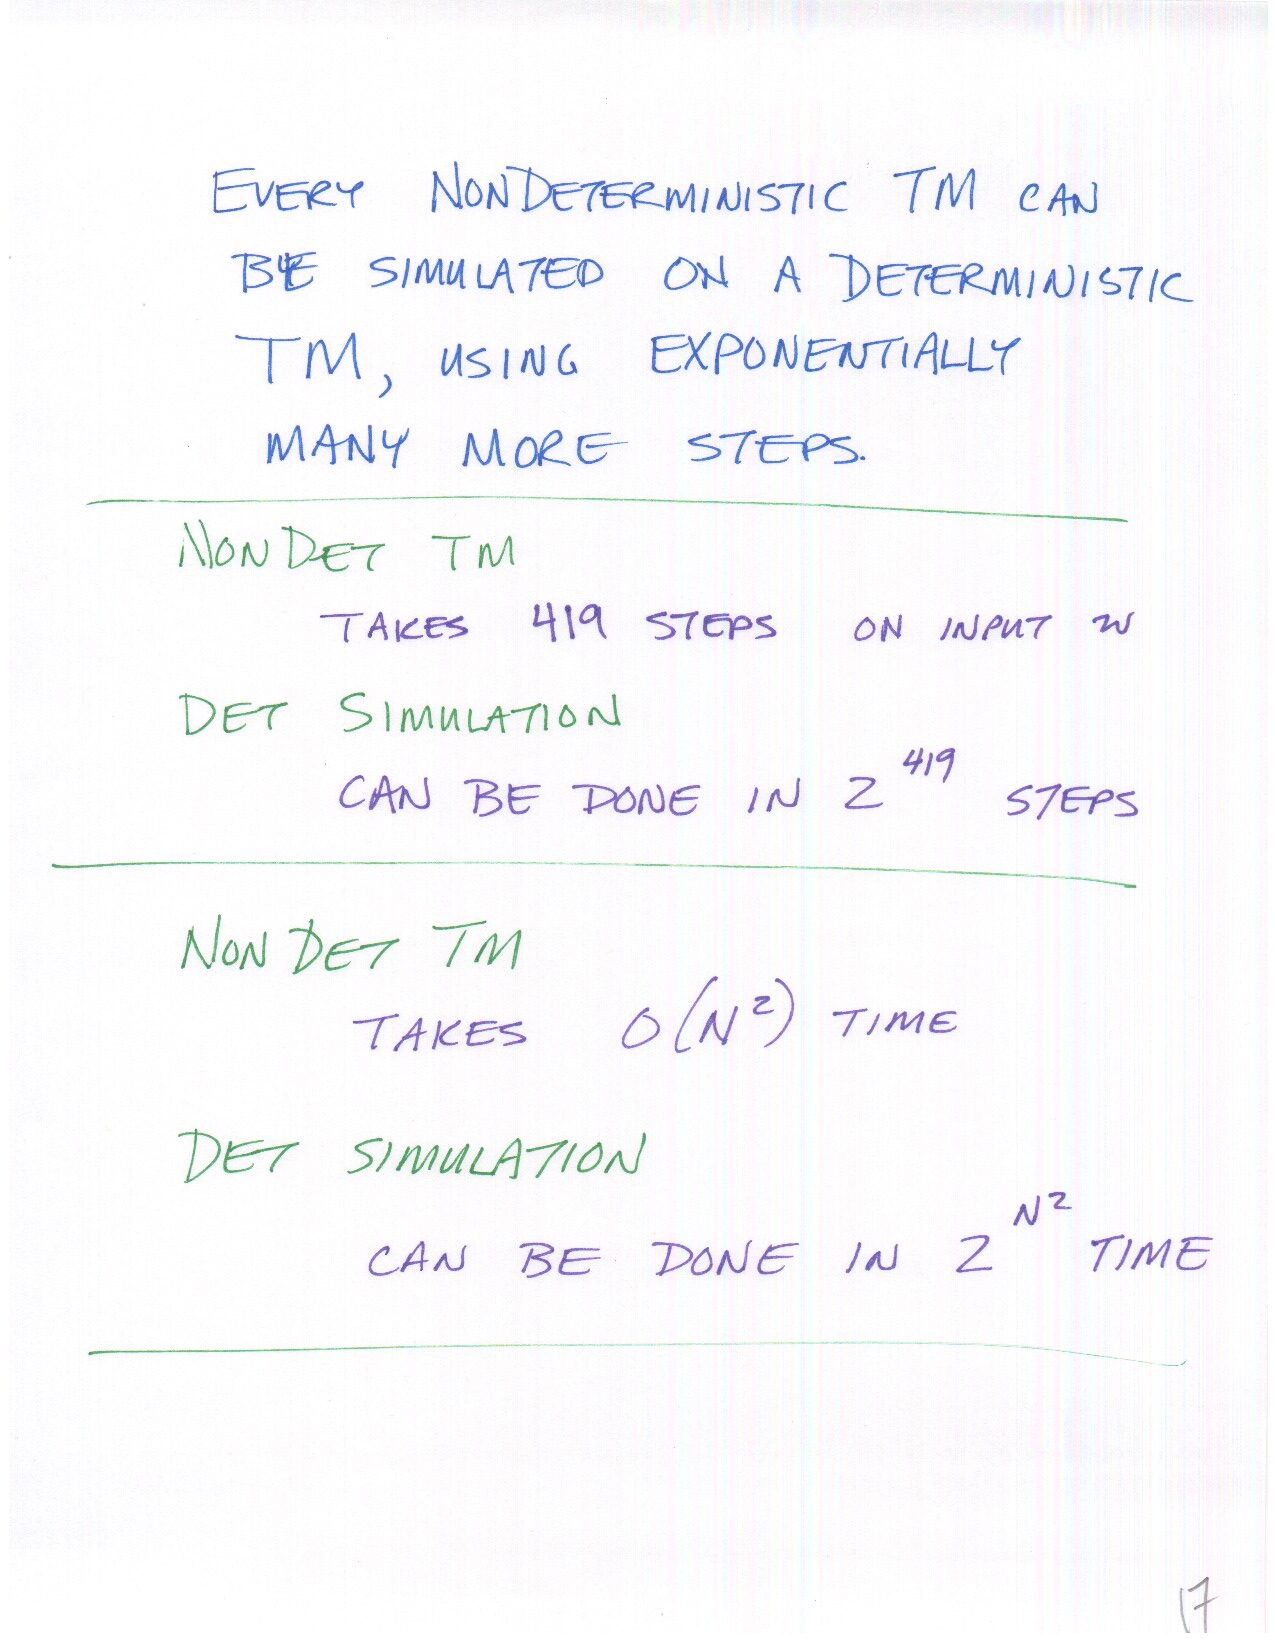 EVERY NONDETERMINISTIC TM CAN
BE SIMULATED ON A DETERMINISTIC
TM, USING EXPONENTIALLY
MANY MORE STEPS.
NON DET TM
TAKES 419 STEPS ON INPUT w
DET SIMULATION
CAN BE DONE IN 2^419 STEPS
NON DET TM
TAKES O(N²) TIME
DET SIMULATION
CAN BE DONE IN 2^N² TIME
17